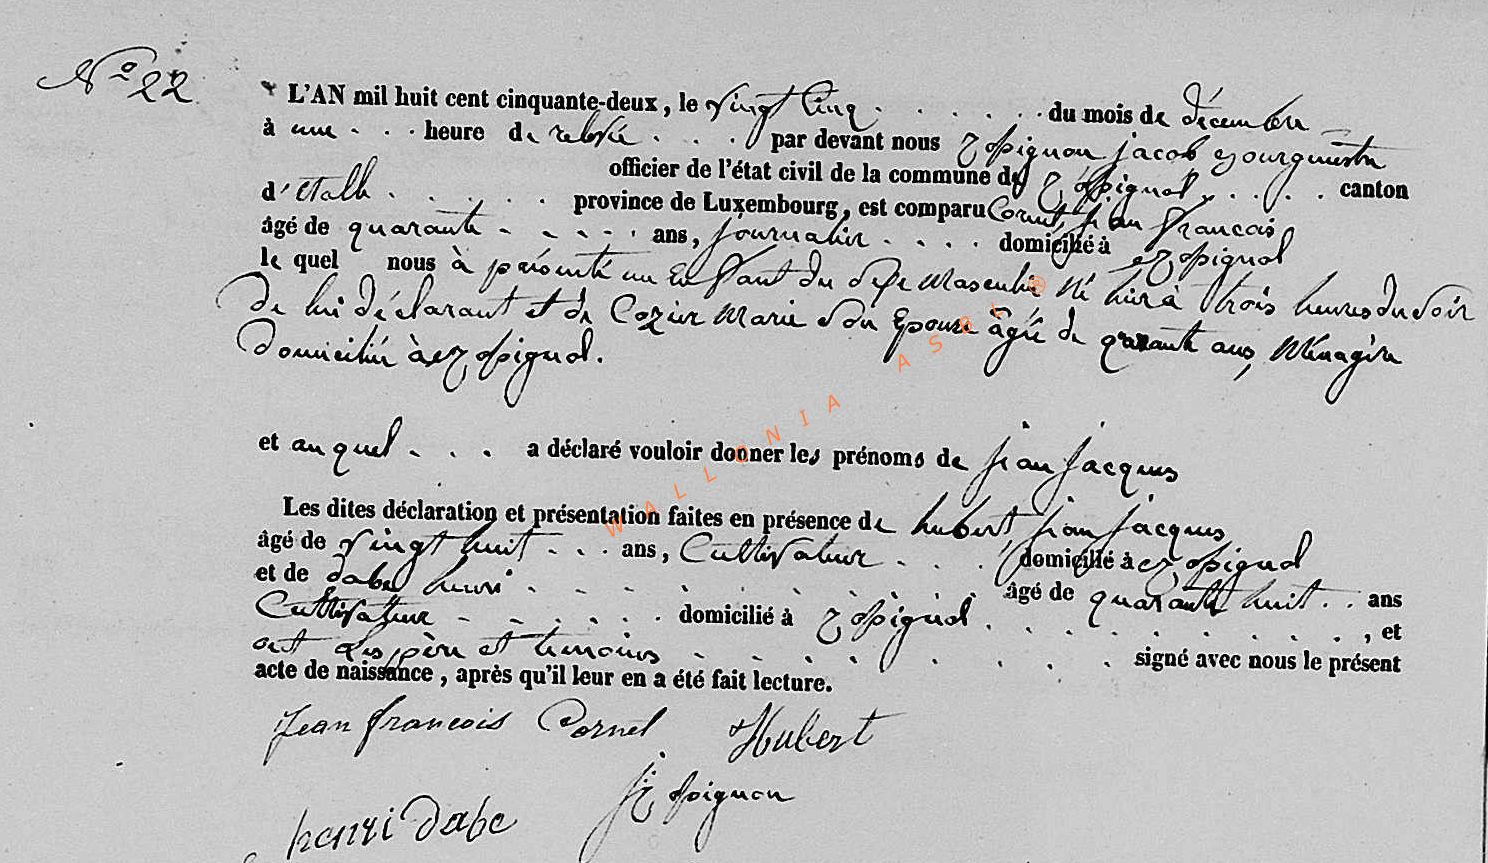 N° 22
L'AN mil huit cent cinquante-deux, le vingt cinq . . . . . . du mois de décembre
à une . . . heure de relevée . . . . par devant nous Zoppignon jacob Bourgmestre
officier de l'état civil de la commune de . . . . canton
d'étalle . . . . . . province de Luxembourg, est comparu Cornet, jean françois
âgé de quarante . . . . . . ans, journalier . . . . domicilié à
le quel nous à présenté un Enfant du sexe Masculin Né hier à trois heures du soir
de lui déclarant et de Cozier Marie son Epouse âgée de quarante ans, Ménagère
domiciliée à
et auquel . . . a déclaré vouloir donner les prénoms de jean jacques
Les dites déclaration et présentation faites en présence de hubert, jean jacques
âgé de vingt huit . . . ans, Cultivateur . . . . domicilié à
et de dabe henri . . . . . . . . . . âgé de quarante huit . . ans
Cultivateur . . . . . . domicilié à . . . . . . . . . . , et
ont les père et témoins . . . . . . . . . signé avec nous le présent
acte de naissance, après qu'il leur en a été fait lecture.
Jean françois Cornet Hubert
henri dabe
WALLONIA ASBL ®